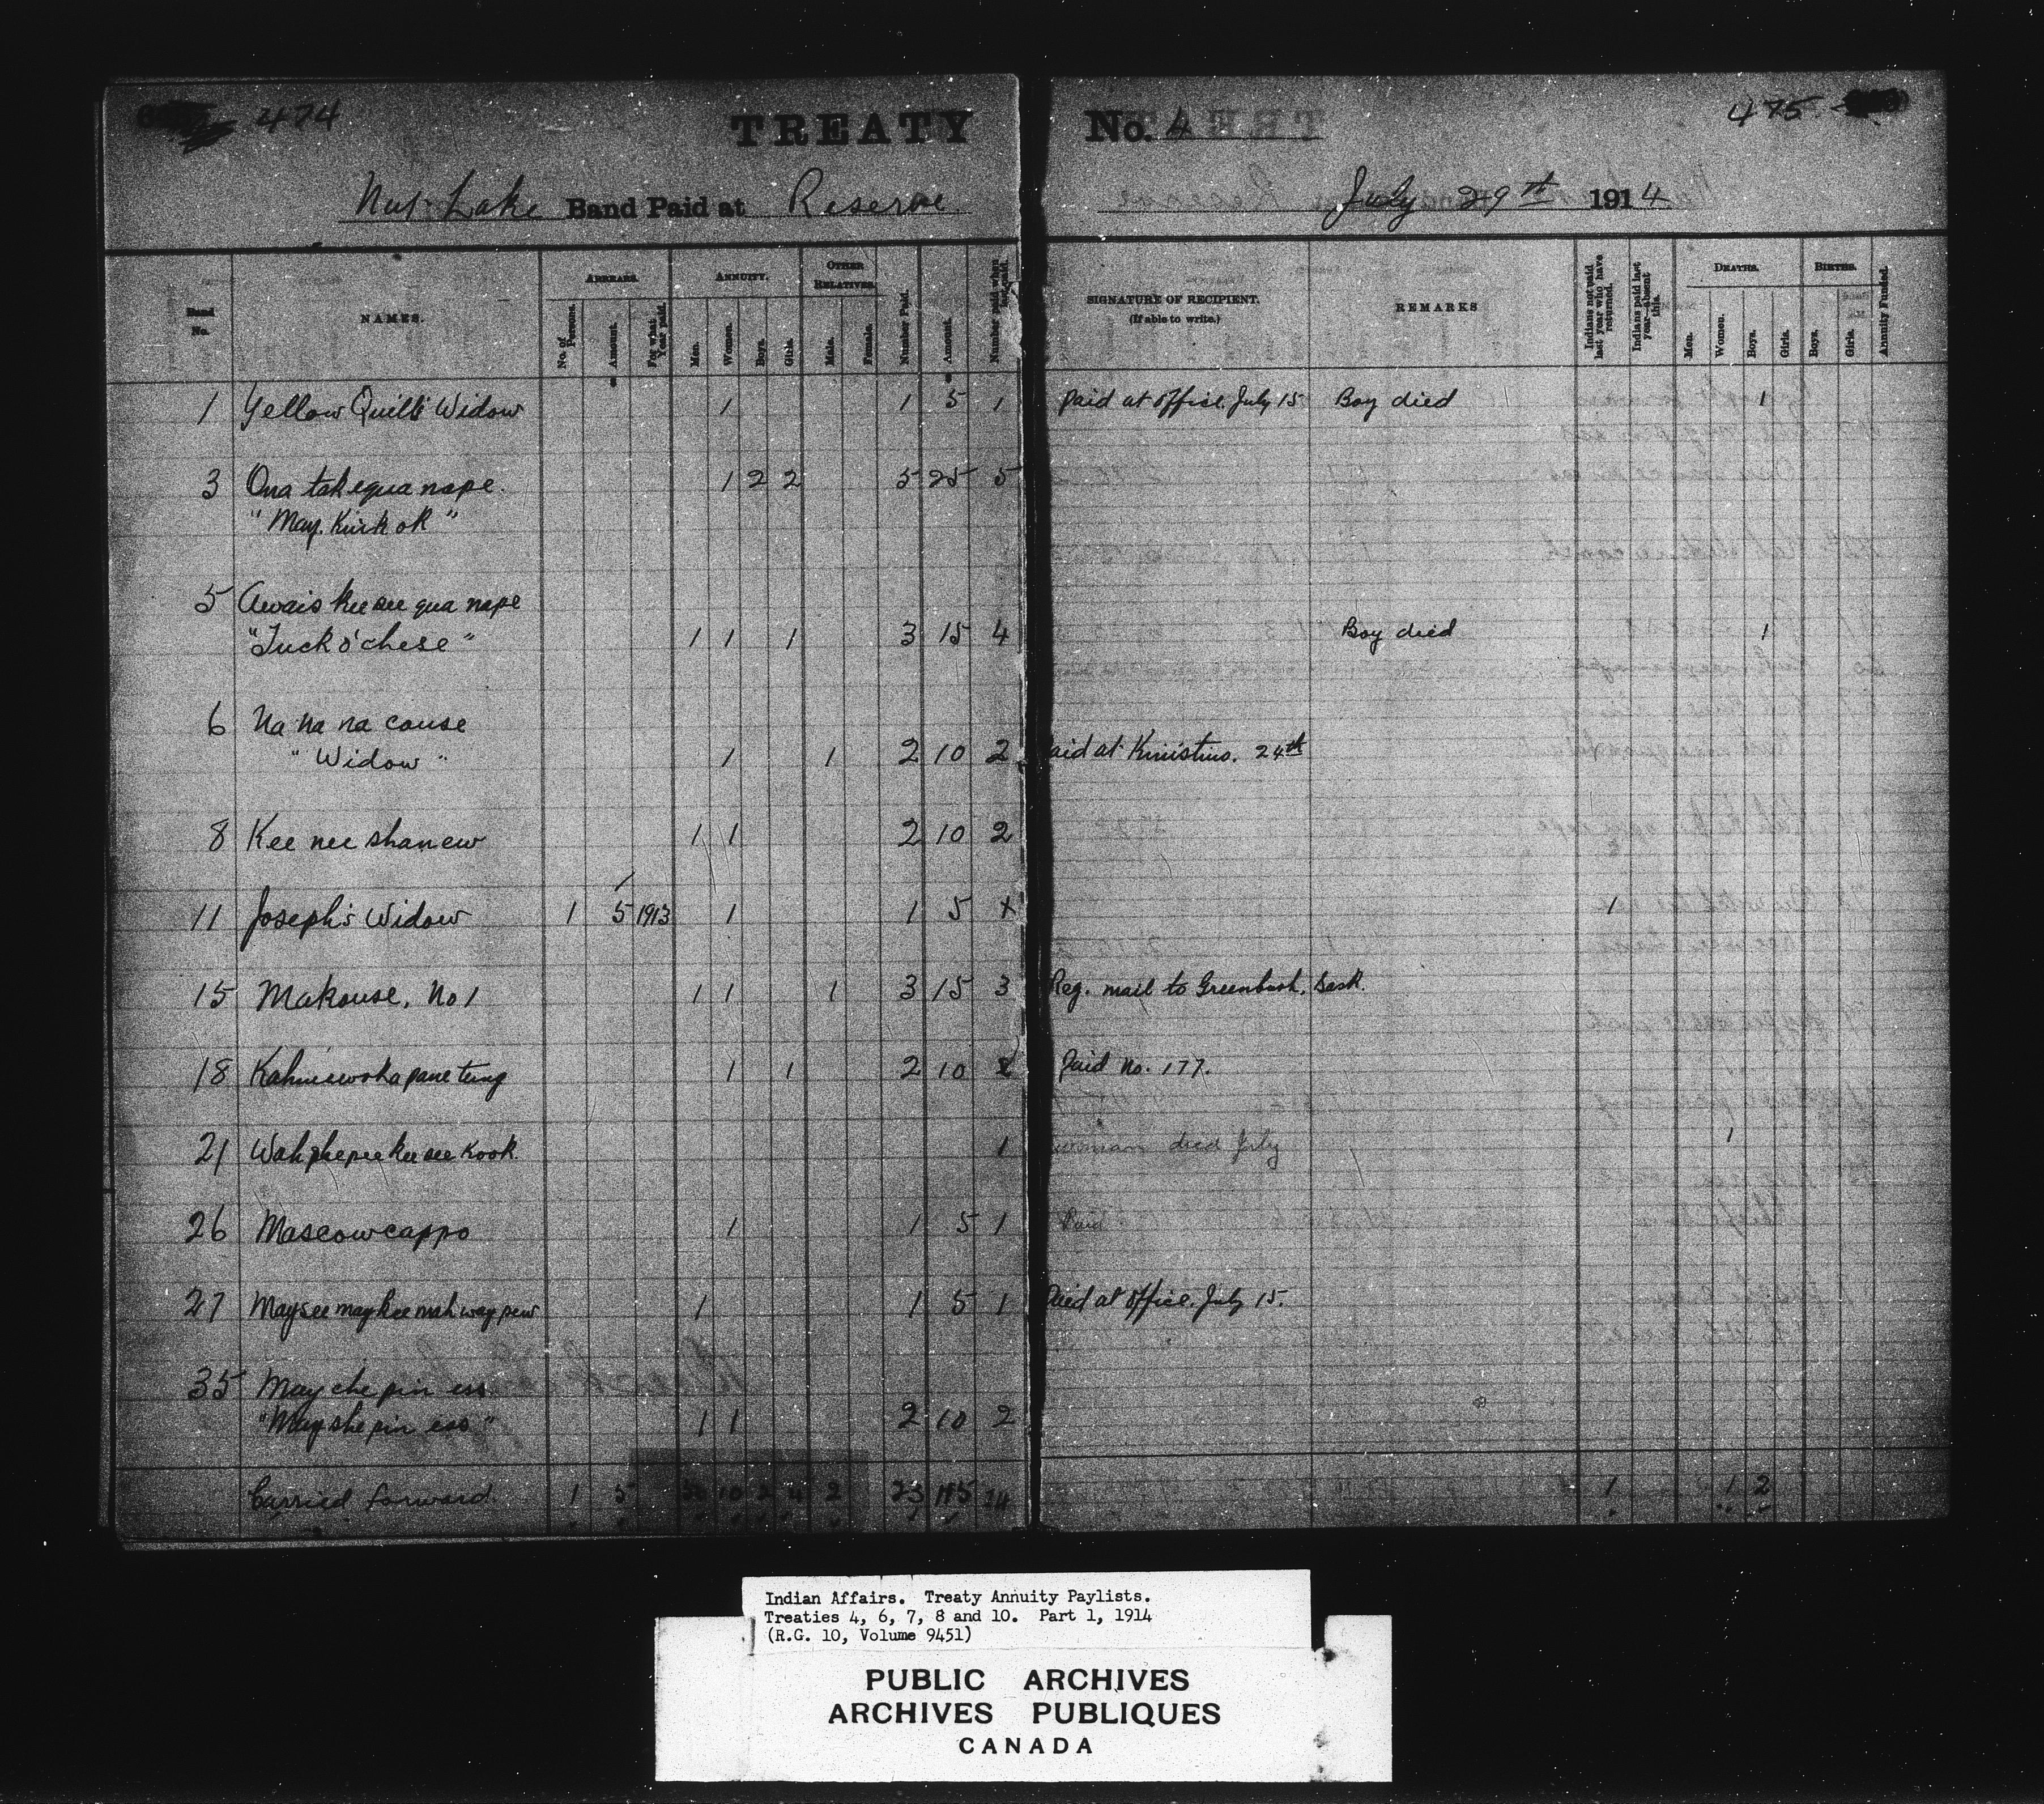 474
TREATY No. 4
475
Nut Lake Band Paid at Reserve July 29th 1914
Band No.
NAMES.
ARREARS.
No. of Persons.
Amount.
For what Year paid.
ANNUITY.
Men.
Women.
Boys.
Girls.
OTHER RELATIVES.
Male.
Female.
Number Paid.
Amount.
Number paid when last paid.
SIGNATURE OF RECIPIENT.
(If able to write.)
REMARKS
Indians not paid last year who have returned.
Indians paid last year—absent this.
DEATHS.
Men.
Women.
Boys.
Girls.
BIRTHS.
Boys.
Girls.
Annuity Funded.
1 Yellow Quill's Widow 1 1 5 1 Paid at Office. July 15 Boy died 1
3 Ona takequa nape. 1 2 2 5 25 5
"May. Kuik ok"
5 Awais kee see qua nape
"Tuck o'chese" 1 1 1 3 15 4 Boy died 1
6 Na na na couse
"Widow" 1 1 2 10 2 Paid at Kinistino. 24th
8 Kee nee shanew 1 1 2 10 2
11 Joseph's Widow 1 5 1913 1 1 5 x 1
15 Makouse. No 1 1 1 1 3 15 3 Reg. mail to Greenbush. Sask.
18 1 1 2 10 2 Paid No. 177.
21 Wahpheepee kee see kook. 1 woman died July 1
26 Mascowcappo 1 1 5 1 Paid
27 Maysee maykee mah way pew 1 1 5 1 Paid at Office. July 15.
35 May che pin ess
"May she pin ess" 1 1 2 10 2
Carried forward. 1 5 10 2 4 2 23 115 24 1 1 2
Indian Affairs. Treaty Annuity Paylists.
Treaties 4, 6, 7, 8 and 10. Part 1, 1914
(R.G. 10, Volume 9451)
PUBLIC ARCHIVES
ARCHIVES PUBLIQUES
CANADA